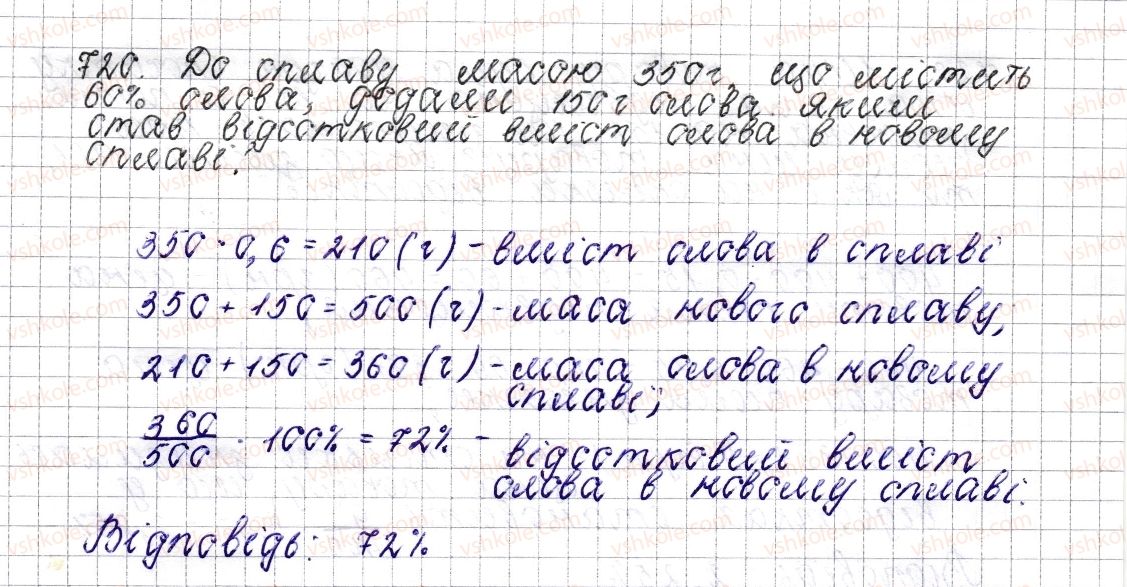 720. До сплаву масою 350г, що містить
60% олова, додали 150г олова. Яким
став відсотковий вміст олова в новому
сплаві?
350 · 0,6 = 210 (г) - вміст олова в сплаві
350 + 150 = 500 (г) - маса нового сплаву;
210 + 150 = 360 (г) - маса олова в новому
сплаві;
360/500 · 100% = 72% - відсотковий вміст
олова в новому сплаві.
Відповідь: 72%